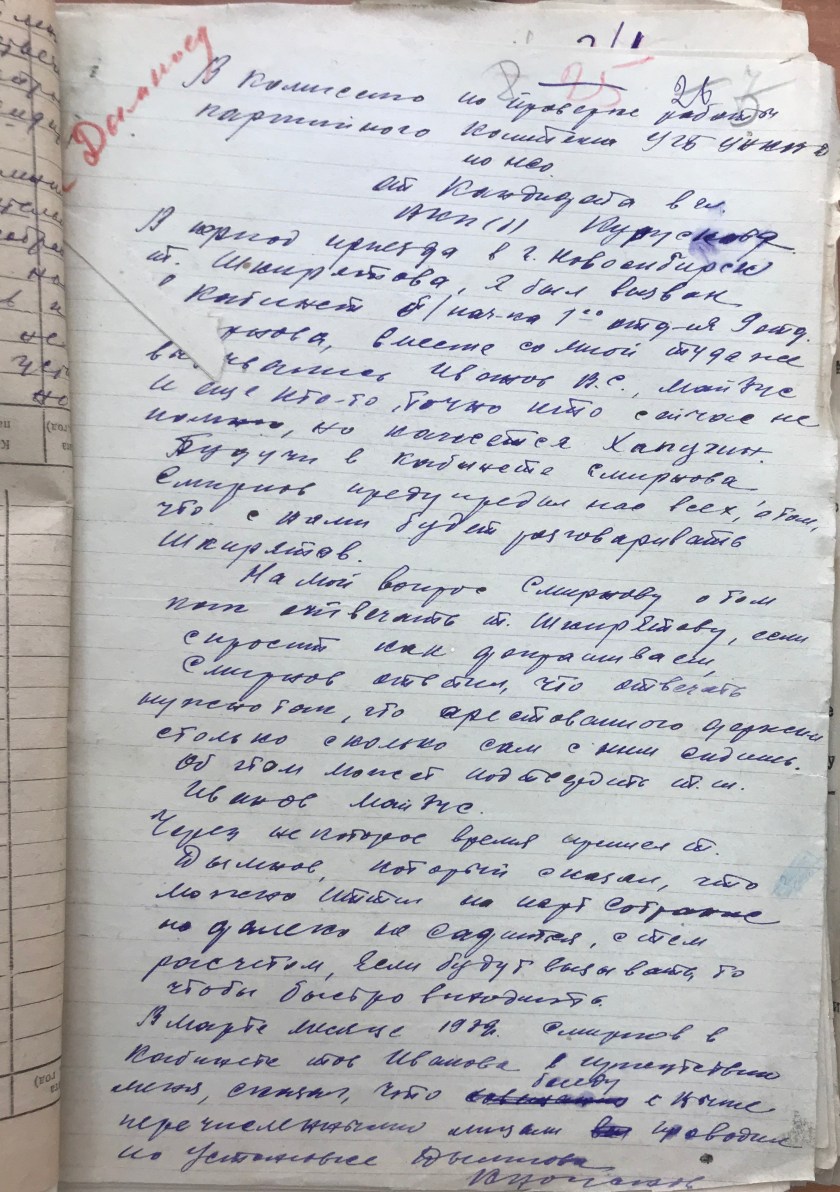 Дымнов
25
26
3
В комиссию по проверке работы
партийного комитета УГБ УНКВД
по НСО
от Кандидата в чл.
ВКП(б)
В период приезда в г. Новосибирск
т. Шкирятова, я был вызван
в кабинет б/нач-ка 1го отд-я 9 отд.
вместе со мной туда же
вызывались Иванов В.С., Майдус
и еще кто-то, точно кто сейчас не
помню, но кажется Хапугин.
Будучи в кабинете Смирнова
Смирнов предупредил нас всех, о том,
что с нами будет разговаривать
Шкирятов.
На мой вопрос Смирнову о том
как отвечать т. Шкирятову, если
спросит как допрашиваем,
Смирнов ответил, что отвечать
нужно так, что арестованного держим
столько сколько сам с ним сидишь.
Об этом может подтвердить т.т.
Иванов Майдус.
Через некоторое время пришел т.
Дымнов, который сказал, что
можно итти на парт собрание
но далеко не садится, с тем
расчетом, если будут вызывать, то
чтобы быстро выходить.
В марте месяце Смирнов в
кабинете тов Иванова в присутствии
беседу
меня, сказал, что с выше
перечисленными лицами проводил
по установке Дымнова